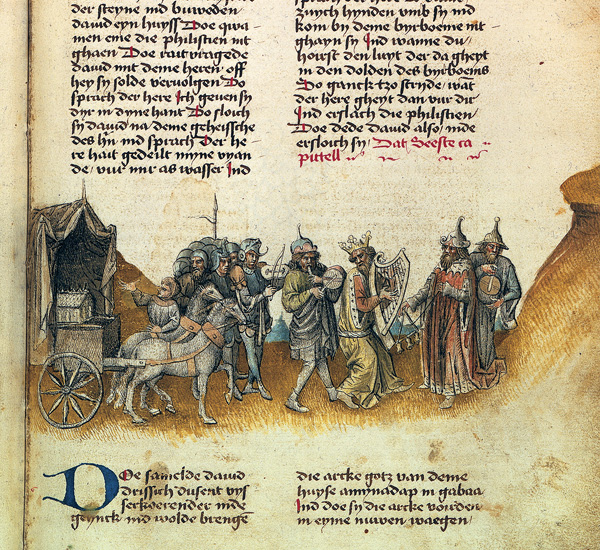 der steyne ind buweden
dauid eyn huyss Doe qwa
men eme die philistien nit
ghaen Doe rait vragede
dauid mit deme heren off
hey sy solde vervolgen Do
sprach der here Ich geuen sy
dyr in dyne hant Do sloich
sy dauid na deme geheissche
des hrn ind sprach Der he
re hait gedeilt myne vyan
de vur mir as wasser Ind
zuych hynden vmb sy ind
kom by deme byrboeme nit
ghayn sy Ind wanne du
hoirst den luyt der da gheyt
in den dolden des byrboems
So ganck tzo stryde wat
der here gheyt dan vur dir
Ind erslach die philistien
Doe dede dauid also inde
ersloich sy Dat seeste ca
pittell
Doe samelde dauid
drissich dusent vyss
verkoerender inde
geynck ind wolde brengē
die arcke gotz van deme
huyse amynadap in gabaa
Ind doe sy die arcke voirden
in eyme nuwen waegen